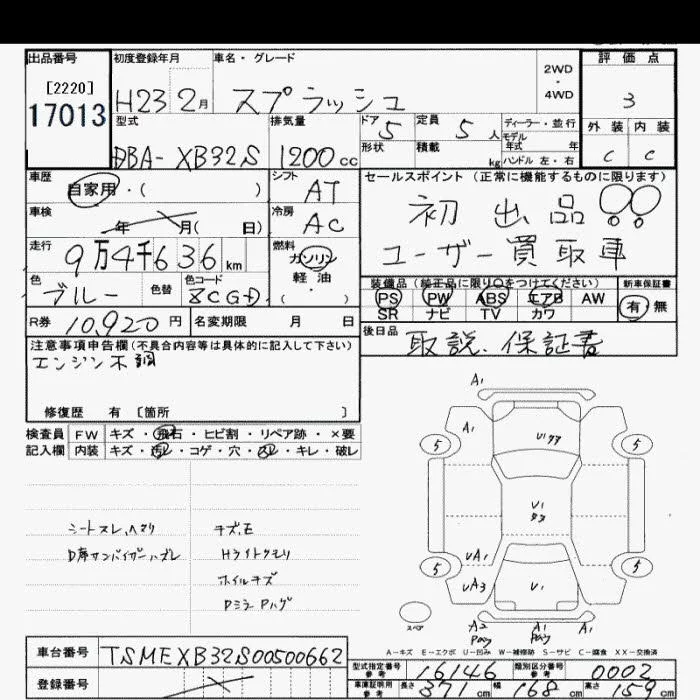 出品番号
[2220]
17013
初度登録年月
H23 2月
車名・グレード
スプラッシュ
2WD
・
4WD
評価点
3
外装 内装
C C
型式
DBA-XB32S
排気量
1200cc
ドア
5
定員
5人
形状
積載
kg
ディーラー・並行
モデル
年式 年
ハンドル 左・右
車歴
自家用・( )
シフト
AT
車検
年 月( 日)
冷房
AC
走行
9万4千636km
燃料
ガソリン
軽油
( ・ )
色
ブルー
色替
色コード
ZCG-D
R券 10,920円
名変期限 月 日
セールスポイント (正常に機能するものに限ります)
初出品!!
ユーザー買取車
装備品(純正品に限り○をつけてください)
PS PW ABS エアB AW
SR ナビ TV カワ
新車保証書
有・無
後日品
取説、保証書
注意事項申告欄(不具合内容等は具体的に記入して下さい)
エンジン不調
修復歴 有 [箇所 ]
検査員 FW キズ・飛石・ヒビ割・リペア跡・×要
記入欄 内装 キズ・汚レ・コゲ・穴・スレ・キレ・破レ
シートスレ、ヘタリ
D席サンバイザーハズレ
キズ、E
Hライトクモリ
ホイルキズ
DミラーPハゲ
A1
A1
5
5
U1タワ
U1
タワ
UA1
5
5
UA3
U1
スペア
A2
Pay
A1
Pay
A1
A-キズ E-エクボ U-凹み W-補修跡 S-サビ C-腐食 XX-交換済
車台番号
TSMEXB32S00500662
登録番号
型式指定番号
参考
16146
類別区分番号
参考
0002
車庫証明用
参考
長さ 371cm 幅 168cm 高さ 159cm